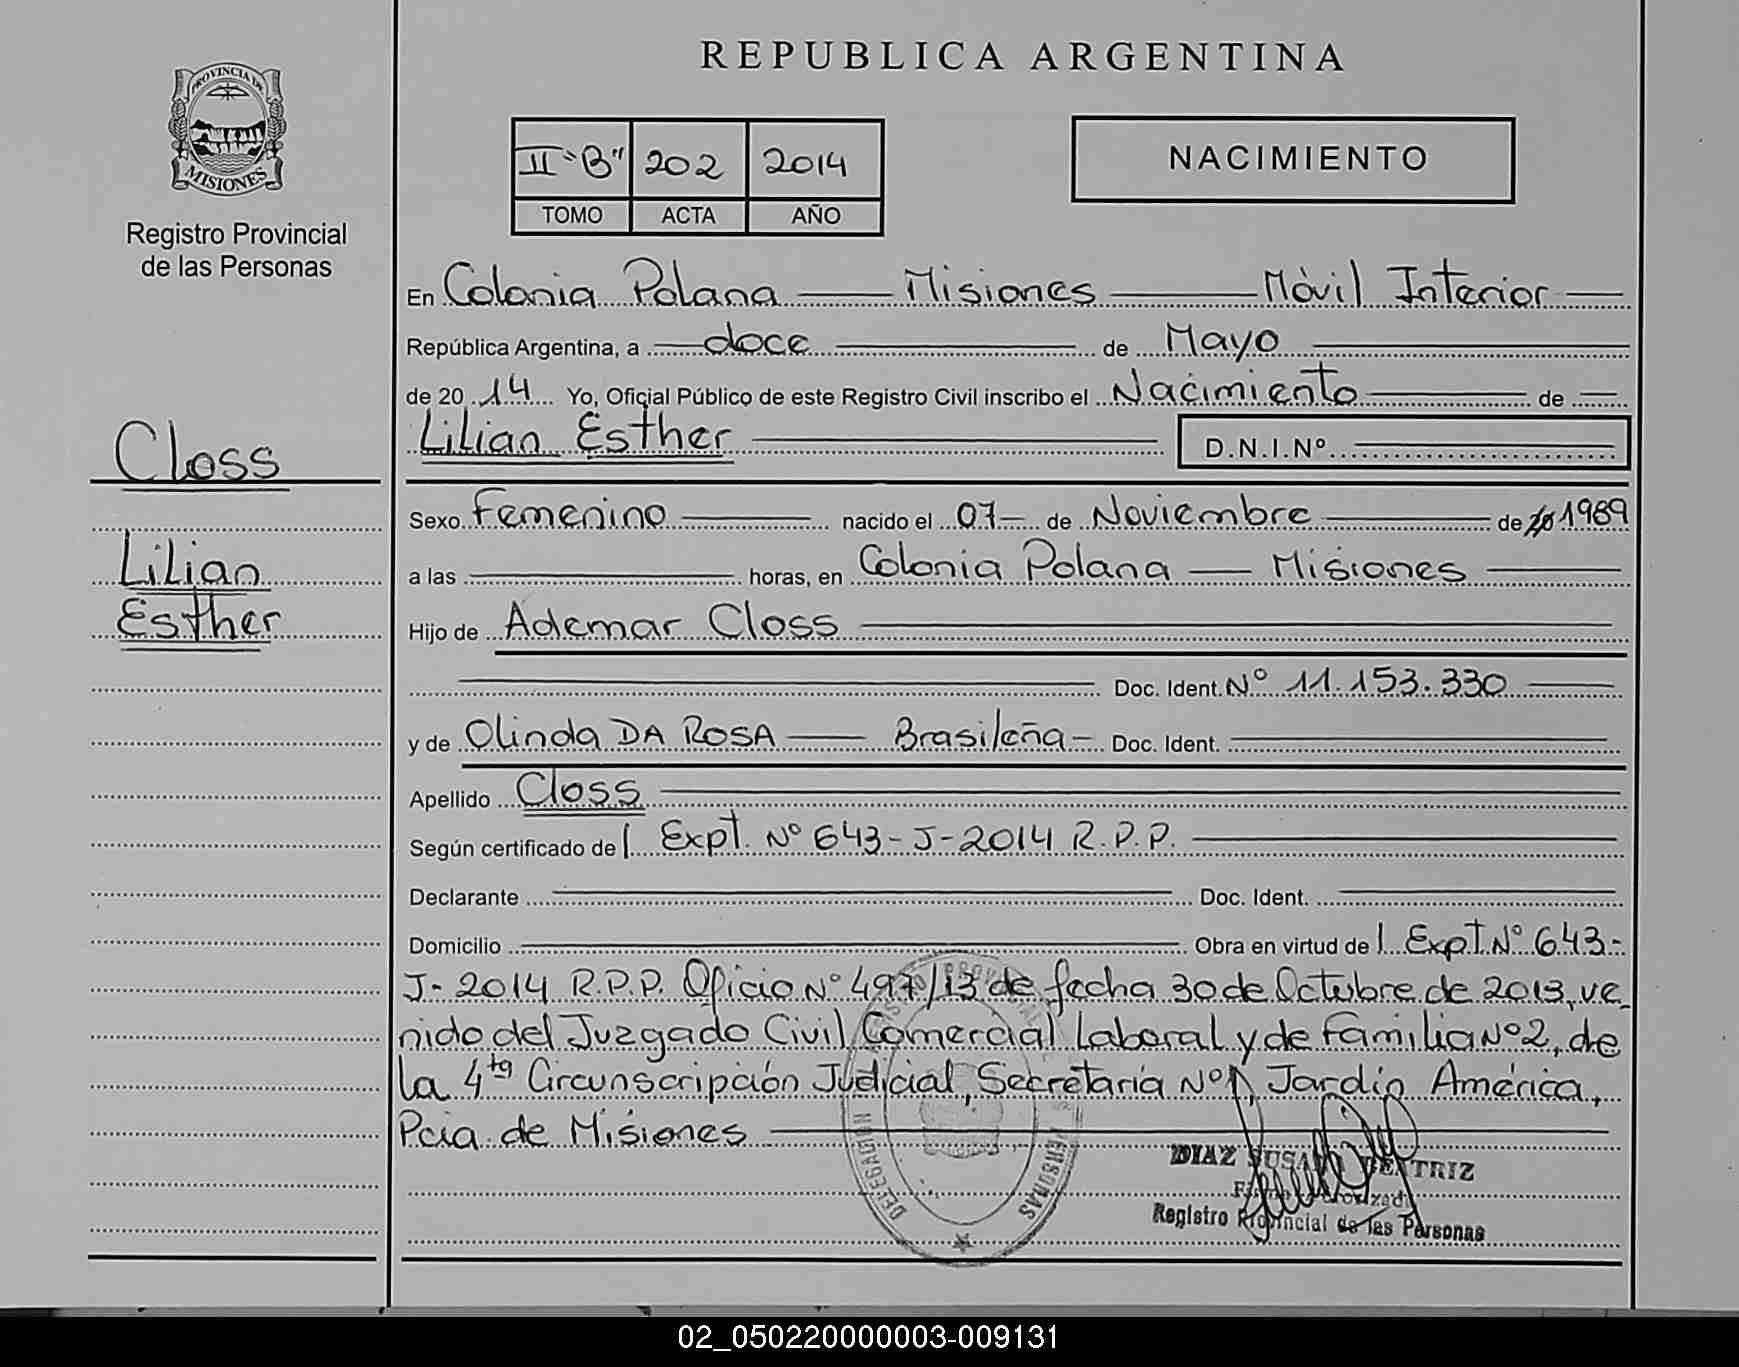 REPUBLICA ARGENTINA
PROVINCIA DE
MISIONES
Registro Provincial
de las Personas
II "B" 202 2014
TOMO ACTA AÑO
NACIMIENTO
En Colonia Polana Misiones Móvil Interior
República Argentina, a doce de Mayo
de 2014 Yo, Oficial Público de este Registro Civil inscribo el Nacimiento de
Lilian Esther D.N.I.Nº
Closs
Lilian
Esther
Sexo Femenino nacido el 07 de Noviembre de 20 1989
a las horas, en Colonia Polana Misiones
Hijo de Ademar Closs
Doc. Ident. Nº 11.153.330
y de Olinda DA ROSA Brasileña Doc. Ident.
Apellido Closs
Según certificado de Expt. Nº 643-J-2014 R.P.P.
Declarante Doc. Ident.
Domicilio Obra en virtud de Expt. Nº 643-
J-2014 R.P.P. Oficio Nº 497/13 de fecha 30 de Octubre de 2013, ve
nido del Juzgado Civil Comercial Laboral y de Familia Nº 2, de
la 4ta Circunscripción Judicial, Secretaría Nº 1, Jardín América,
Pcia de Misiones
DIAZ SUSANA BEATRIZ
Firma Autorizada
Registro Provincial de las Personas
02_050220000003-009131